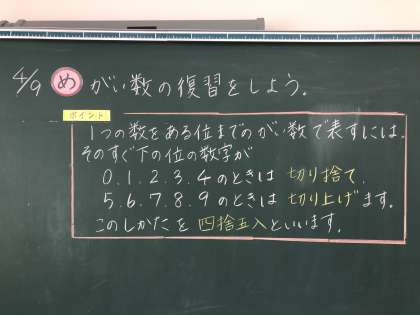 4/9 め がい数の復習をしよう.
ポイント
1つの数をある位までのがい数で表すには.
そのすぐ下の位の数字が
0.1.2.3.4のときは 切り捨て.
5.6.7.8.9のときは 切り上げます.
このしかたを 四捨五入といいます.